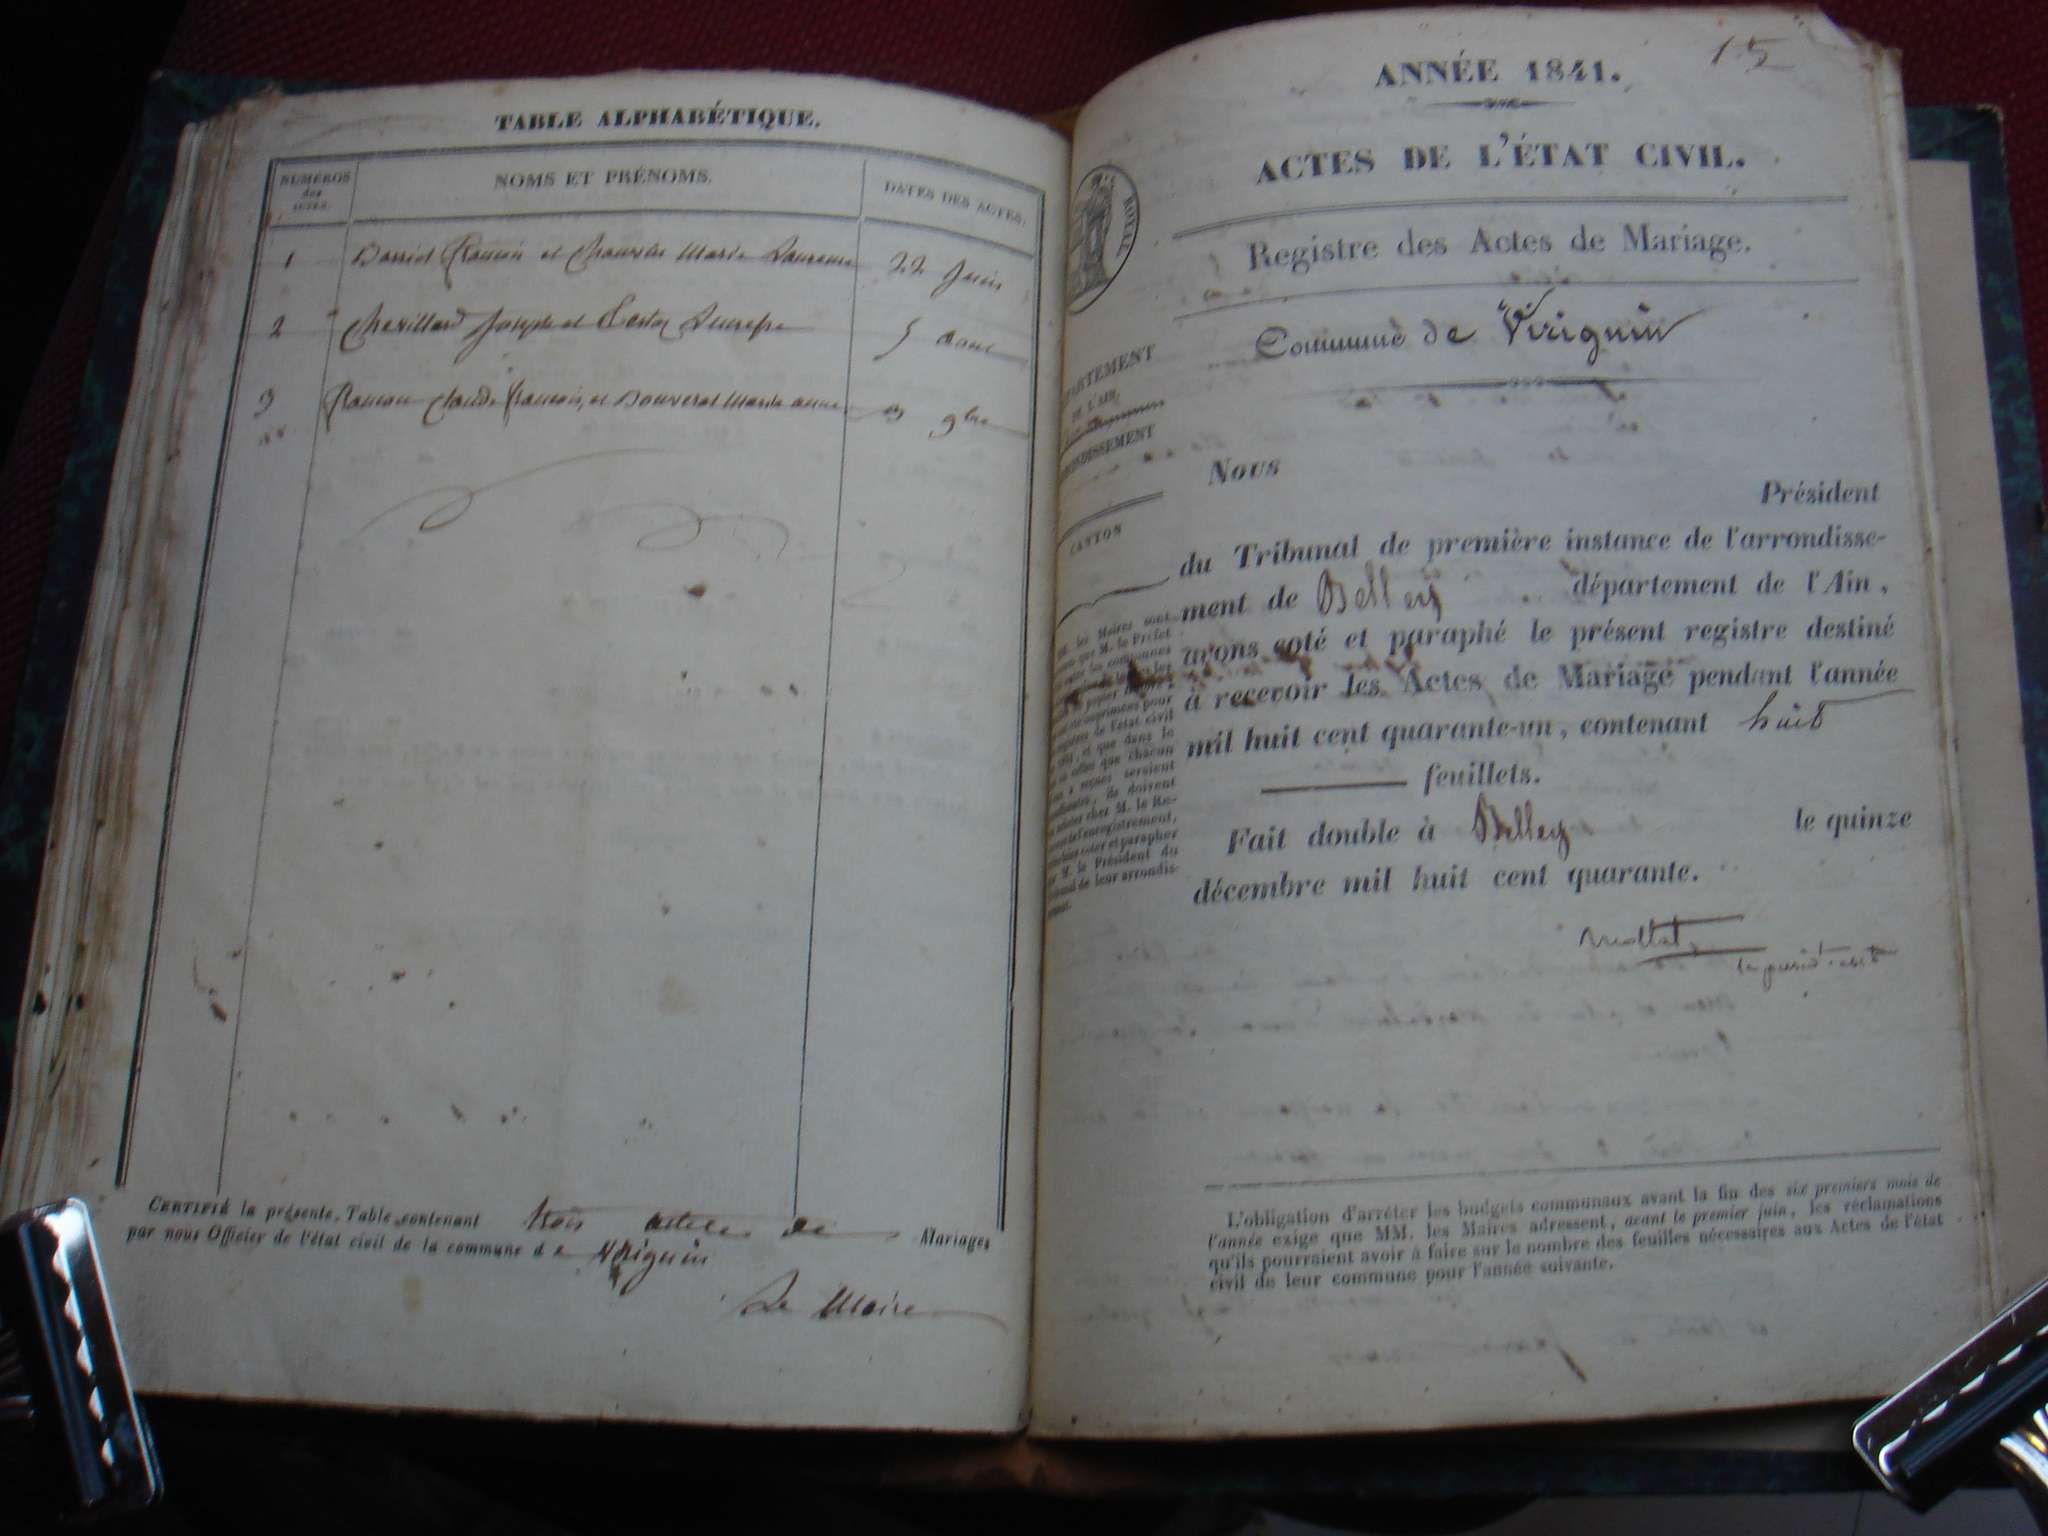 TABLE ALPHABÉTIQUE.
NUMÉROS
des
ACTES.
NOMS ET PRÉNOMS.
DATES DES ACTES.
1 et Marie 22 Juin
2 Chevillard Joseph et 5
3 Claude françois, et Marie anne 9bre
CERTIFIÉ la présente Table contenant trois actes de Mariages
par nous Officier de l'état civil de la commune de Virignin
Le Maire
15
ANNÉE 1841.
ACTES DE L'ÉTAT CIVIL.
ROYAL
Registre des Actes de Mariage.
Commune de Virignin
DE L'AIN.
CANTON
Nous
Président
du Tribunal de première instance de l'arrondisse-
ment de Belley département de l'Ain,
avons coté et paraphé le présent registre destiné
à recevoir les Actes de Mariage pendant l'année
mil huit cent quarante-un, contenant huit
feuillets.
Fait double à Belley le quinze
décembre mil huit cent quarante.
les Maires sont
que M. le Préfet
les communes
imprimées pour
de l'état civil
et que dans le
celles que chacun
a reçues seraient
ils doivent
chez M. le Re-
de l'enregistrement,
coter et parapher
M. le Président du
de leur arrondis-
L'obligation d'arrêter les budgets communaux avant la fin des six premiers mois de
l'année exige que MM. les Maires adressent, avant le premier juin, les réclamations
qu'ils pourraient avoir à faire sur le nombre des feuilles nécessaires aux Actes de l'état
civil de leur commune pour l'année suivante.